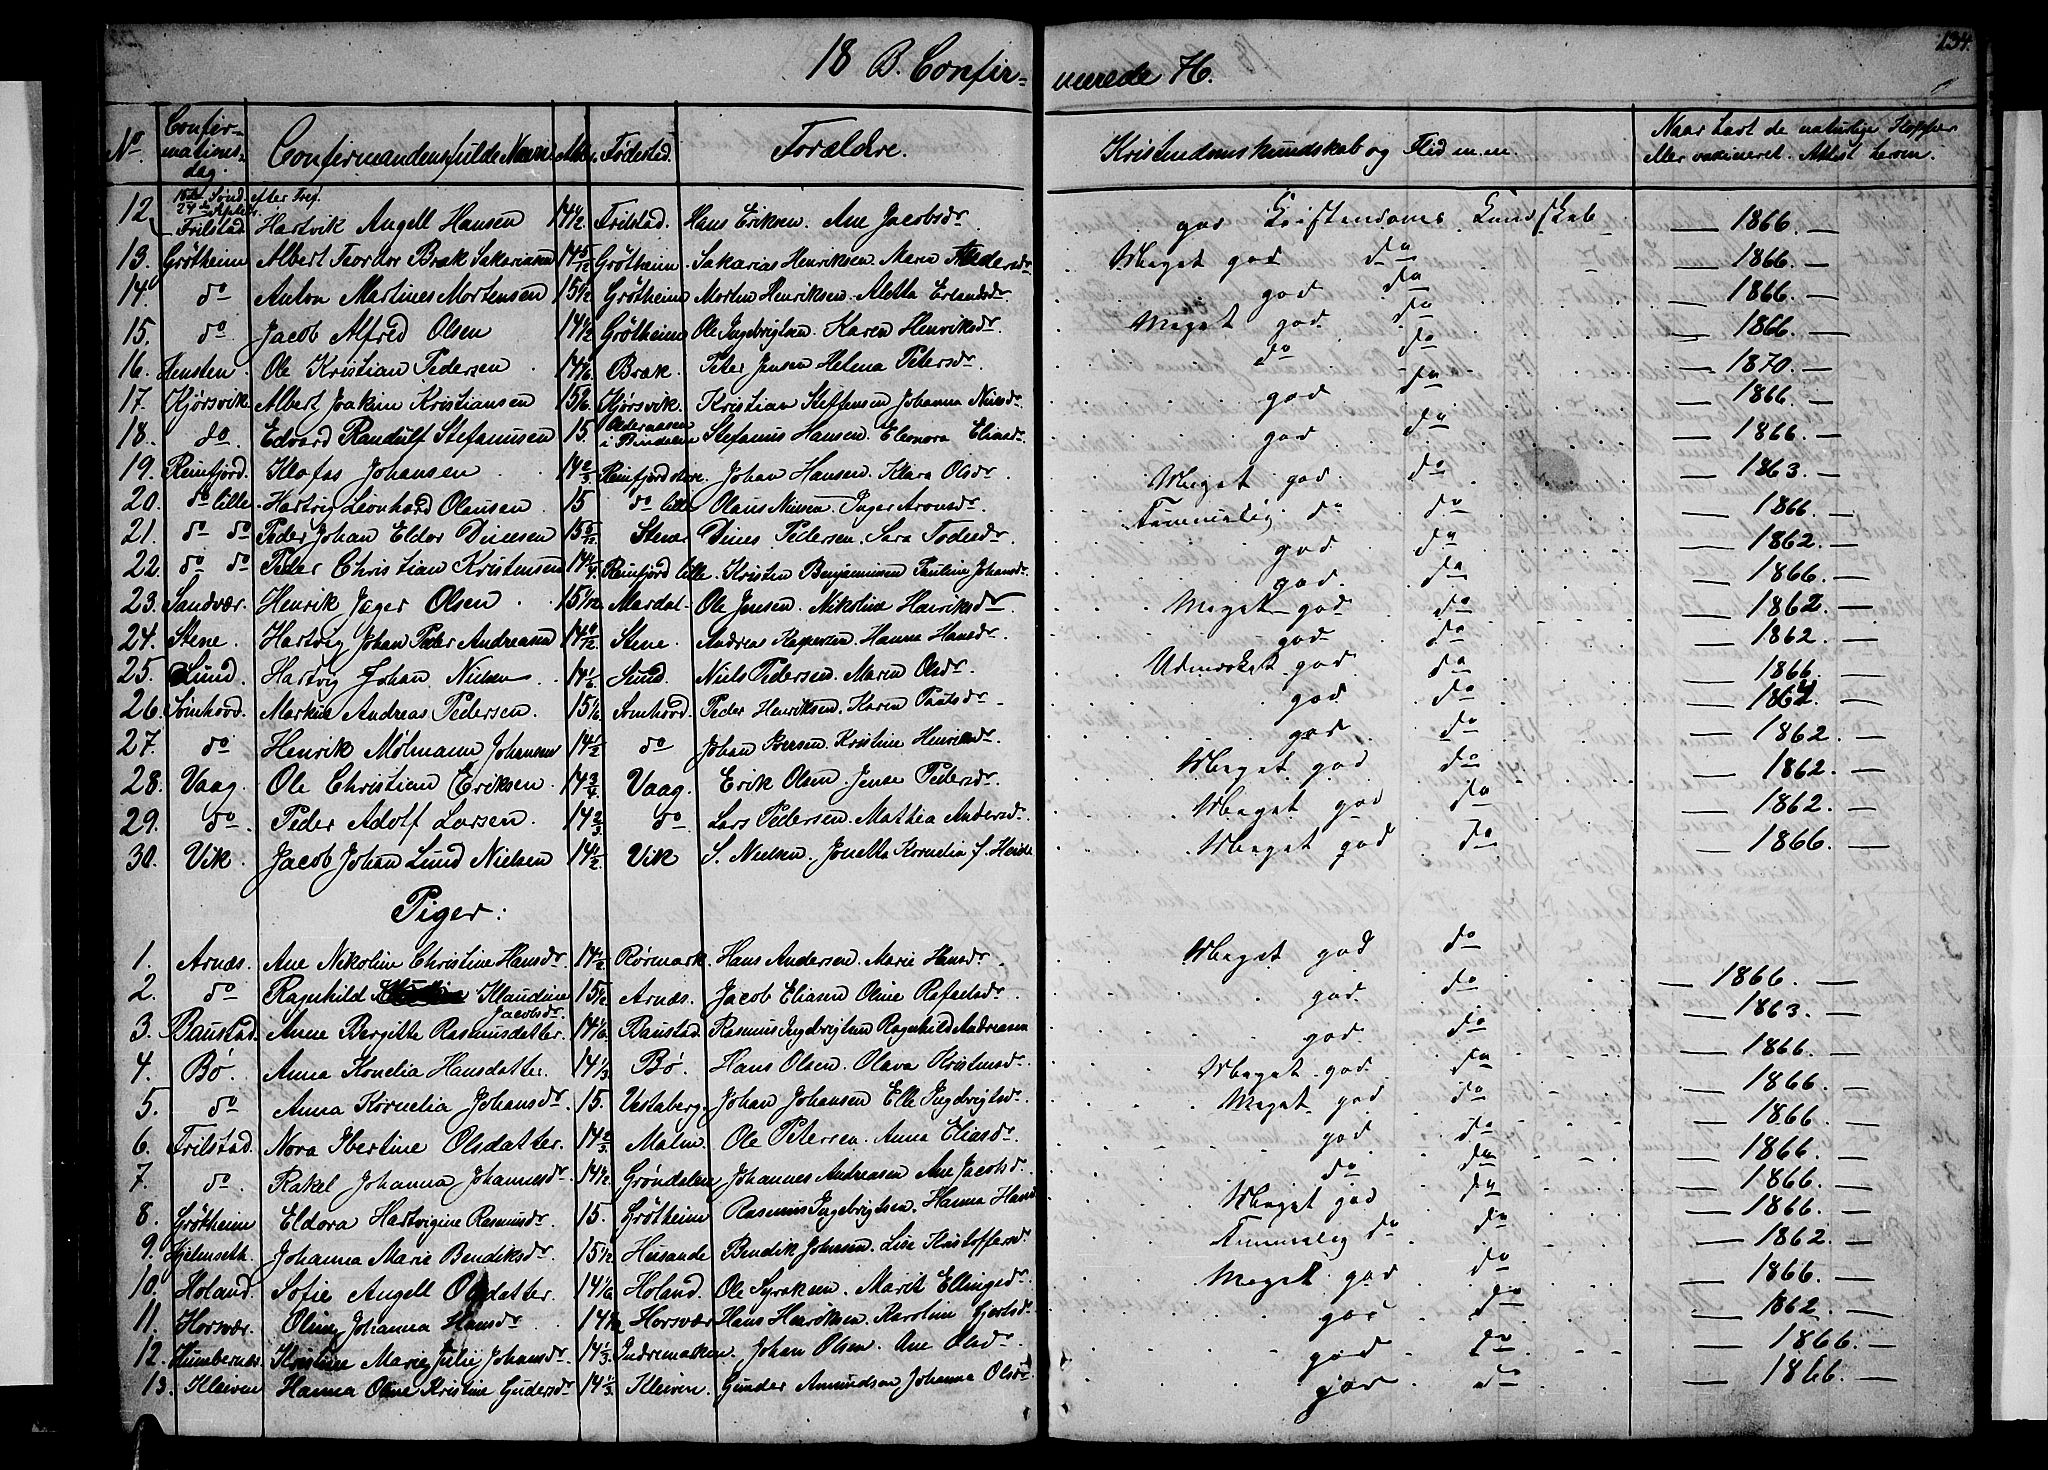 134.
18 B. Confir- merede H.
No. Confirmationsdag. Confirmandens fulde Navn Alder. Fødested. Forældre. Kristendomskundskab og Flid m.m. Naar havt de naturlige Kopper eller vaksineret. Attest herom.
15de Sønd. efter Tref. 24de Septbr.
12. Frilstad. Hartvik Angell Hansen 14 1/2 Frilstad. Hans Eriksen. Ane Jacobsdr god Kristendoms Kundskab — 1866. —
13. Grøtheim Albert Teordor Bræk Sakariasen 14 5/12 Grøtheim. Sakarias Henriksen. Maren Andersdr Meget god do — 1866. —
14. do Anton Martines Mortensen 15 1/2 Grøtheim Morten Henriksen. Aletta Erlandsdr. god do — 1866. —
15. do Jacob Alfred Olsen 14 1/2 Grøtheim Ole Ingebrigtsen. Karen Henriksdr. Meget god do — 1866. —
16. Hensten. Ole Kristian Pedersen 14 1/6 Bræk. Peter Jensen Helena Petersdr. do do — 1870. —
17. Kjørsvik. Albert Joakim Kristiansen 15 2/6 Kjørsvik. Kristian Steffensen Johanna Nilsdr. god do — 1866. —
18. do. Edvard Randulf Stefanusen 15. i Bindalen Stefanus Hansen. Eleonora Eliasdr. god do — 1866. —
19. Reinfjord. Klofas Johansen 14 2/3 Reinfjord store. Johan Hansen. Klara Olsdr Meget god do — 1863. —
20. do lille. Hartvig Leonhard Olausen. 15 do lille Olaus Nilsen. Inger Aronsdr. Temmelig do do — 1866. —
21. do do Peder Johan Eldor Dinesen 15 5/12 Stene Dines Pedersen. Sara Todesdr. god do — 1862. —
22. do do Peder Christian Kristensen 14 3/4 Reinfjord lille. Kristen Benjaminsen Pauline Johansdr. god. do — 1866. —
23. Sandvær. Henrik Jager Olsen 15 1/12 Mardal. Ole Jensen. Nikoline Henriksdr Meget god do — 1862. —
24. Stene. Hartvig Johan Peder Andreasen 14 10/12 Stene. Andrea Kaspersen. Hanna Hansdr. god do — 1862. —
25. Sund. Hartvig Johan Nielsen 14 1/6 Sund. Niels Pedersen. Maren Olsdr. Udmerket god do — 1866. —
26. Sømhord. Markus Andreas Pedersen. 15 1/6 Sømhord. Peder Henriksen. Karen Paulsdr. god do 1864. —
27. do Henrik Mølmann Johansen 14 1/2 do Johan Iversen. Kristine Henriksdr. god do — 1862. —
28. Vaag. Ole Christian Eriksen. 14 3/4 Vaag. Erik Olsen. Jense Pedersdr. Meget god do — 1862. —
29. do. Peder Adolf Larsen. 14 2/3 do Lars Pedersen. Mathea Andersdr. Meget god do — 1862. —
30. Vik. Jacob Johan Lund Nielsen 14 1/2 Vik S. Nielsen. Jonetta Kornelia f. Heide Meget god do — 1866. —
Piger:
1. Arnæs. Ane Nikoline Christine Hansdr. 14 1/2 Rørmark. Hans Andersen. Marie Hansdr. Meget god do
2. do Ragnhild Klaudine Jacobsdr. 15 1/2 Arnæs. Jacob Eliasen Oline Rafaelsdr. god. do — 1866. —
3. Baustad. Anne Bergitte Rasmusdatter. 14 1/6 Baustad. Rasmus Ingebrigtsen Ragnhild Andreasen god do — 1863. —
4. Bø. Anna Konelia Hansdatter. 14 1/3 Bø Hans Olsen. Olava Kristensdr. Meget god. do — 1866. —
5. do Anna Kornelia Johansdr. 15. Vestaberg. Johan Johansen Elle Ingebrigtsdr. Meget god do — 1866. —
6. Frilstad. Nora Ibertine Olsdatter. 14 2/3 Malm. Ole Petersen. Anna Eliasdr. god do — 1866. —
7. do Rakel Johanna Johannesdr. 14 1/2 Grøndalen Johannes Andreasen Ane Jacobsdr. do do — 1866. —
8. Grøtheim Eldora Hartvigine Rasmusdr. 15. Grøtheim Rasmus Ingebrigtsen. Hanna Hansdr Meget god do — 1866. —
9. Hjelmseth. Johanna Marie Bendiksdr. 15 1/2 Heisande Bendik Johnsen. Lise Kristoffersdr. Temmelig do. do — 1866. —
10. Holand. Sofie Angell Olsdatter. 14 1/6 Holand. Ole Syraksen. Marit Ellingsdr. Meget god do — 1862. —
11. Horsvær. Oline Johanna Hansdr 14 1/2 Horsvær Hans Henriksen. Karoline Gjertsdr. god do — 1866. —
12. Humbernæs. Kristine Marie Julie Johansdr. 14 1/3 Indremarken. Johan Olsen. Ane Olsdr. god do — 1862. —
13. Kleiven Hanna Oline Kristine Gundersdr. 14 1/3 Kleiven. Gunder Amundsen Johanna Olsdr. god do — 1866. —
— 1866. —